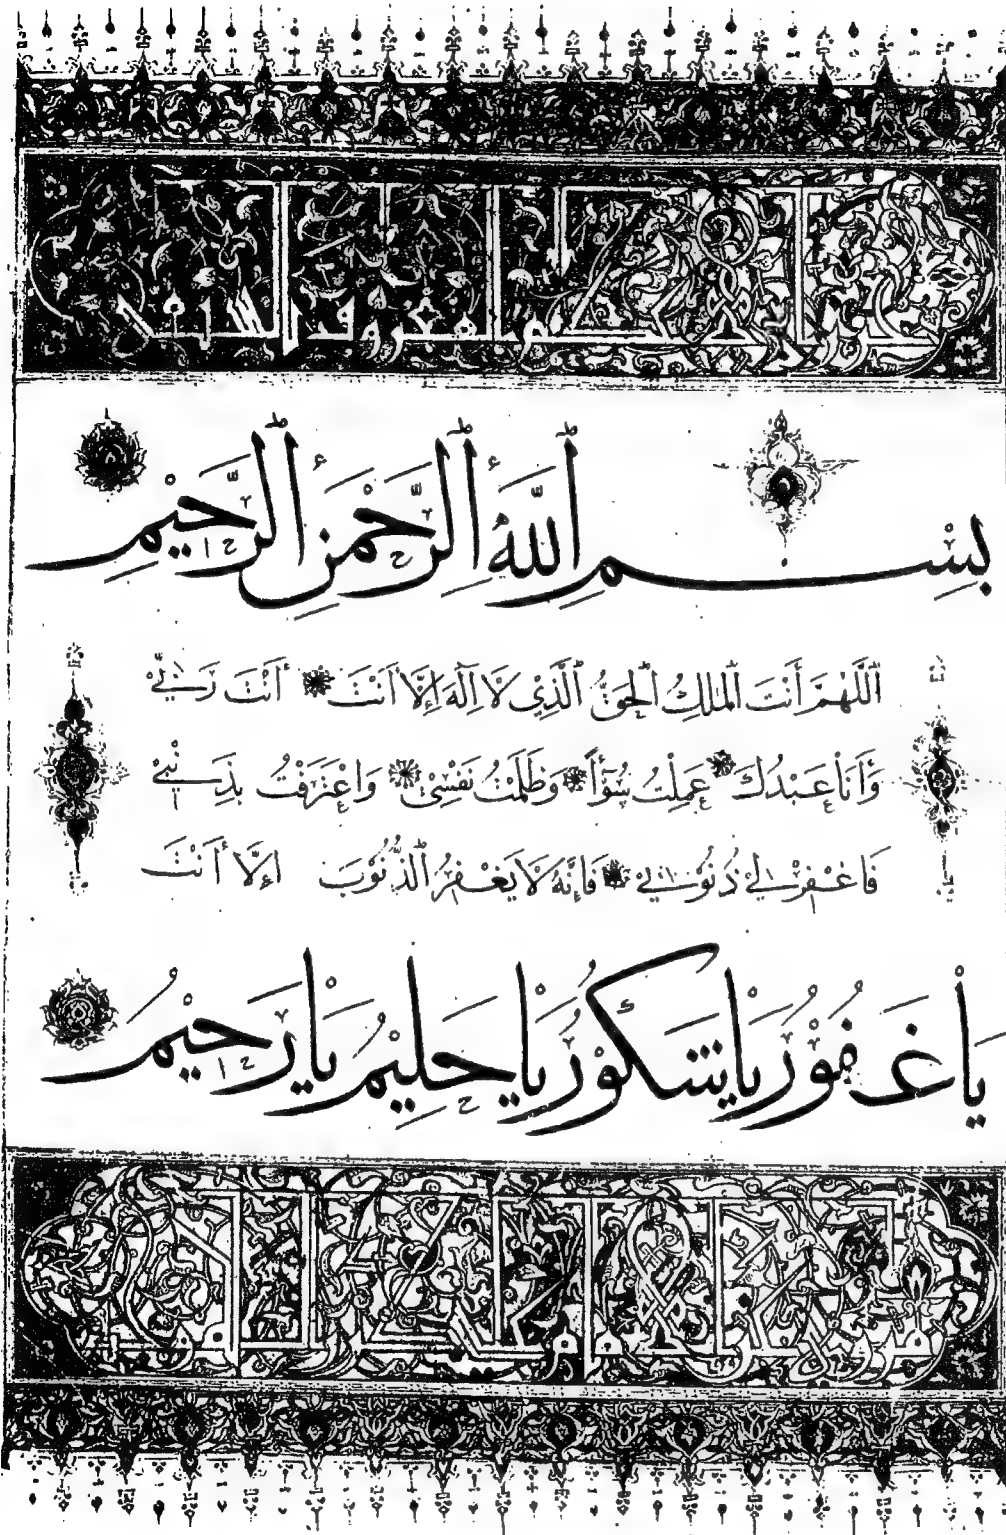 بِسْمِ اللَّهِ الرَّحْمٰنِ الرَّحِيمِ
اَللّٰهُمَّ أَنْتَ الْمَلِكُ الْحَقُّ الَّذِيْ لَا اِلٰهَ إِلَّا أَنْتَ أَنْتَ رَبِّيْ
وَأَنَا عَبْدُكَ عَمِلْتُ سُوْٓأً وَظَلَمْتُ نَفْسِيْ وَاعْتَرَفْتُ بِذَنْبِيْ
فَاغْفِرْ لِيْ ذُنُوْبِيْ فَإِنَّهُ لَا يَغْفِرُ الذُّنُوْبَ اِلَّا أَنْتَ
يَا غَفُوْرُ يَا شَكُوْرُ يَا حَلِيْمُ يَا رَحِيْمُ